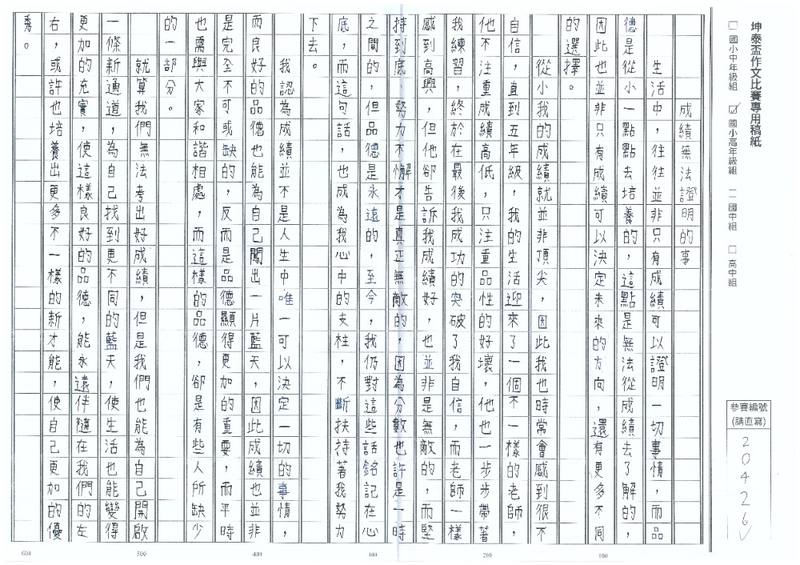 坤泰盃作文比賽專用稿紙
□國小中年級組 ☑國小高年級組 □國中組 □高中組
參賽編號
(請直寫)
20426
成績無法證明的事
生活中，往往並非只有成績可以證明一切事情，而品
德是從小一點點去培養的，這點是無法從成績去了解的，
因此也並非只有成績可以決定未來的方向，還有更多不同
的選擇。
從小我的成績就並非頂尖，因此我也時常會感到很不
自信，直到五年級，我的生活迎來了一個不一樣的老師，
他不注重成績高低，只注重品性的好壞，他也一步步帶著
我練習，終於在最後我成功的突破了我自信，而老師一樣
感到高興，但他卻告訴我成績好，也並非是無敵的，而堅
持到底、努力不懈才是真正無敵的，因為分數也許是一時
之間的，但品德是永遠的，至今，我仍對這些話銘記在心
底，而這句話，也成為我心中的支柱，不斷扶持著我努力
下去。
我認為成績並不是人生中唯一可以決定一切的事情，
而良好的品德也能為自己闖出一片藍天，因此成績也並非
是完全不可或缺的，反而是品德顯得更加的重要，而平時
也需與大家和諧相處，而這樣的品德，卻是有些人所缺少
的一部分。
就算我們無法考出好成績，但是我們也能為自己開啟
一條新通道，為自己找到更不同的藍天，使生活也能變得
更加的充實，使這樣良好的品德，能永遠伴隨在我們的左
右，或許也培養出更多不一樣的新才能，使自己更加的優
秀。
100
200
300
400
500
600